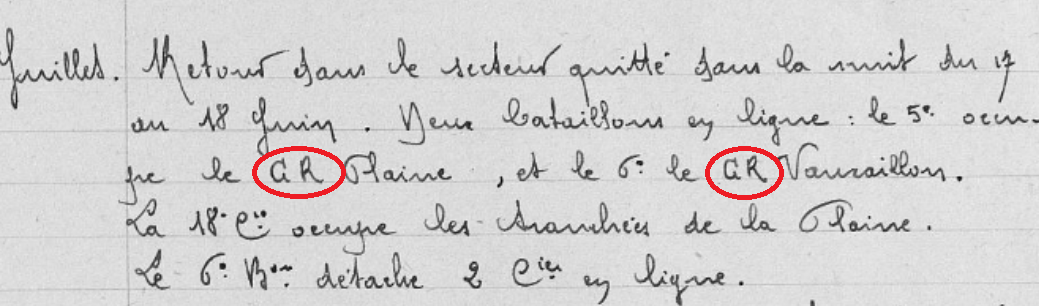 Juillet. Retour dans le secteur quitté dans la nuit du 17
au 18 Juin. Deux bataillons en ligne : le 5e occu-
pe le CR Plaine, et le 6e le CR Vauxaillon.
La 18e Cie occupe les tranchées de la Plaine.
Le 6e Bon détache 2 Cies en ligne.